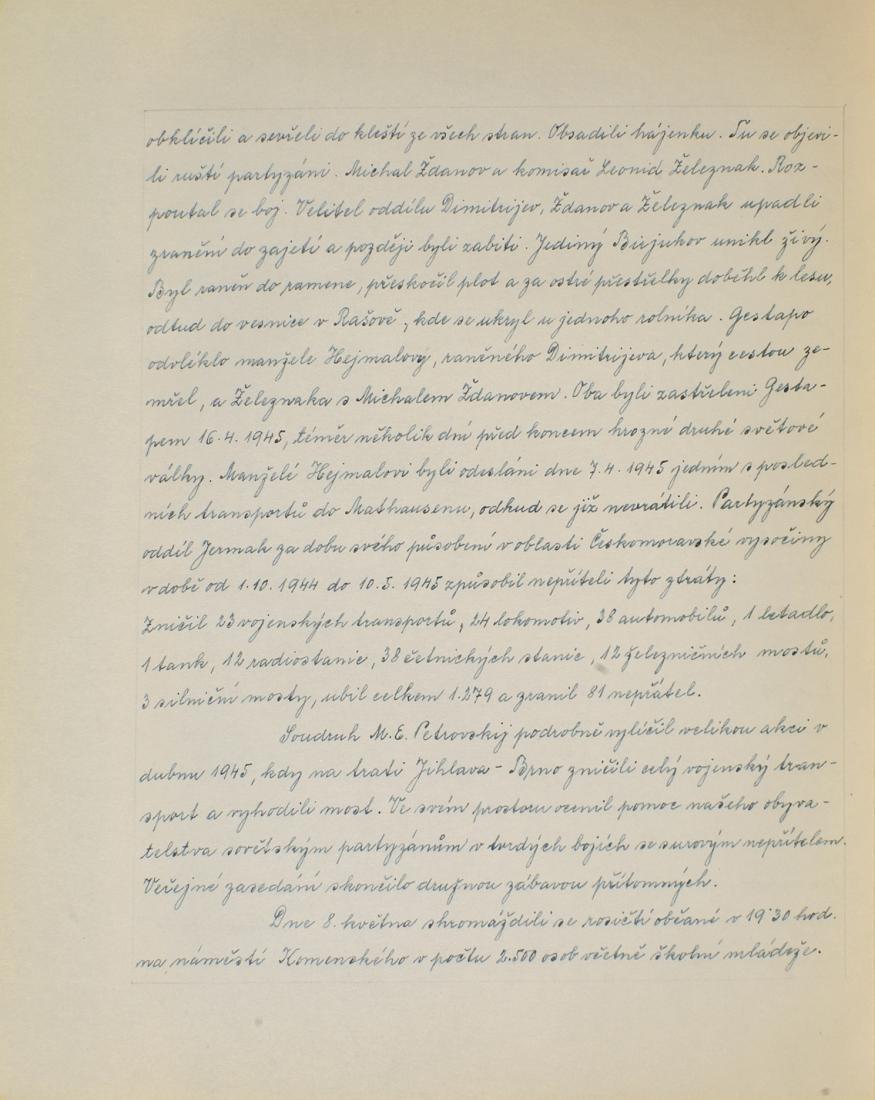 obklíčili a sevřeli do kleští ze všech stran. Obsadili hájenku. Tu se objevi-
li ruští partyzáni. Michal Ždanov a komisař Leonid Železnak. Roz-
poutal se boj. Velitel oddílu Dimitrijev, Ždanov a Železnak upadli
zranění do zajetí a později byli zabiti. Jediný Birjukov unikl živý.
Byl raněn do ramene, přeskočil plot a za ostré přestřelky doběhl k lesu,
odtud do vesnice v Rašově, kde se ukryl u jednoho rolníka. Gestapo
odvléklo manžele Hejmalovy, raněného Dimitrijeva, který cestou ze-
mřel, a Železnaka s Michalem Ždanovem. Oba byli zastřeleni Gesta-
pem 16.4.1945, téměr několik dní před koncem hrozné druhé světové
války. Manželé Hejmalovi byli odesláni dne 7.4.1945 jedním s posled-
ních transportů do Mathausenu, odkud se již nevrátili. Partyzánský
oddíl Jermak za dobu svého působení v oblasti Českomoravské vysočiny
v době od 1.10.1944 do 10.5.1945 způsobil nepříteli tyto ztráty:
Zničil 23 vojenských transportů, 24 lokomotiv, 38 automobilů, 1 letadlo,
1 tank, 12 radiostanic, 38 četnických stanic, 12 železničních mostů,
3 silniční mosty, ubil celkem 1.279 a zranil 81 nepřátel.
Soudruh M.E. Petrovskij podrobně vylíčil velikou akci v
dubnu 1945, kdy na trati Jihlava - Brno zničili celý vojenský tran-
sport a vyhodili most. Ve svém prostoru ocenil pomoc našeho obyva-
telstva sovětským partyzánům v tvrdých bojích se surovým nepřítelem.
Veřejné zasedání skončilo družnou zábavou přítomných.
Dne 8. května shromáždili se rosičtí občané v 19'30 hod.
na náměstí Komenského v počtu 2.500 osob včetně školní mládeže.